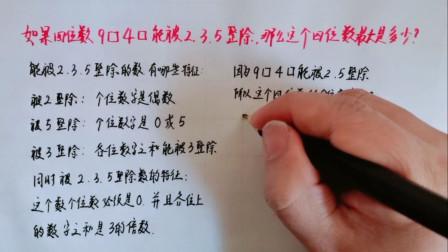 如果四位数9口4口能被2.3.5整除,那么这个四位数最大是多少?
能被2.3.5整除的数有哪些特征:
被2整除:个位数字是偶数
被5整除:个位数字是0或5
被3整除:各位数字之和能被3整除
同时被2.3.5整除数的特征:
这个数个位数必低是0.并且各位上
的数字之和是3的倍数.
因为9口4口能被2.5整除
所以这个四位数